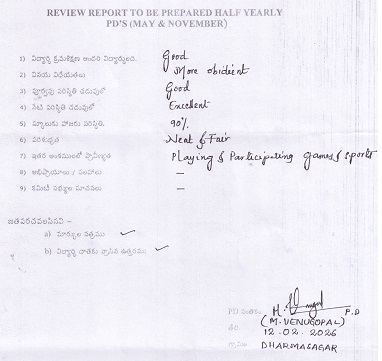 REVIEW REPORT TO BE PREPARED HALF YEARLY
PD'S (MAY & NOVEMBER)
1) విద్యార్థి క్రమశిక్షణ అందరి విద్యార్థులది. Good
2) వినయ విధేయతలు More obidient
3) పూర్వపు పరిస్థితి చదువులో Good
4) నేటి పరిస్థితి చదువులో Excellent
5) స్కూలుకు హాజరు పరిస్థితి. 90%
6) పరిశుభ్రత Neat & Fair
7) ఇతర అంశములలో ప్రావీణ్యత Playing & Participating games & sports
8) అభిప్రాయాలు / సలహాలు –
9) కమిటీ సభ్యుల సూచనలు –
జతపరచవలసినవి –
a) మార్కుల పత్రము ✓
b) విద్యార్థి చాతకు వ్రాసిన ఉత్తరము ✓
PD సంతకం P.D
(M. VENUGOPAL)
తేది 12.02.2026
స్థలము DHARMASAGAR